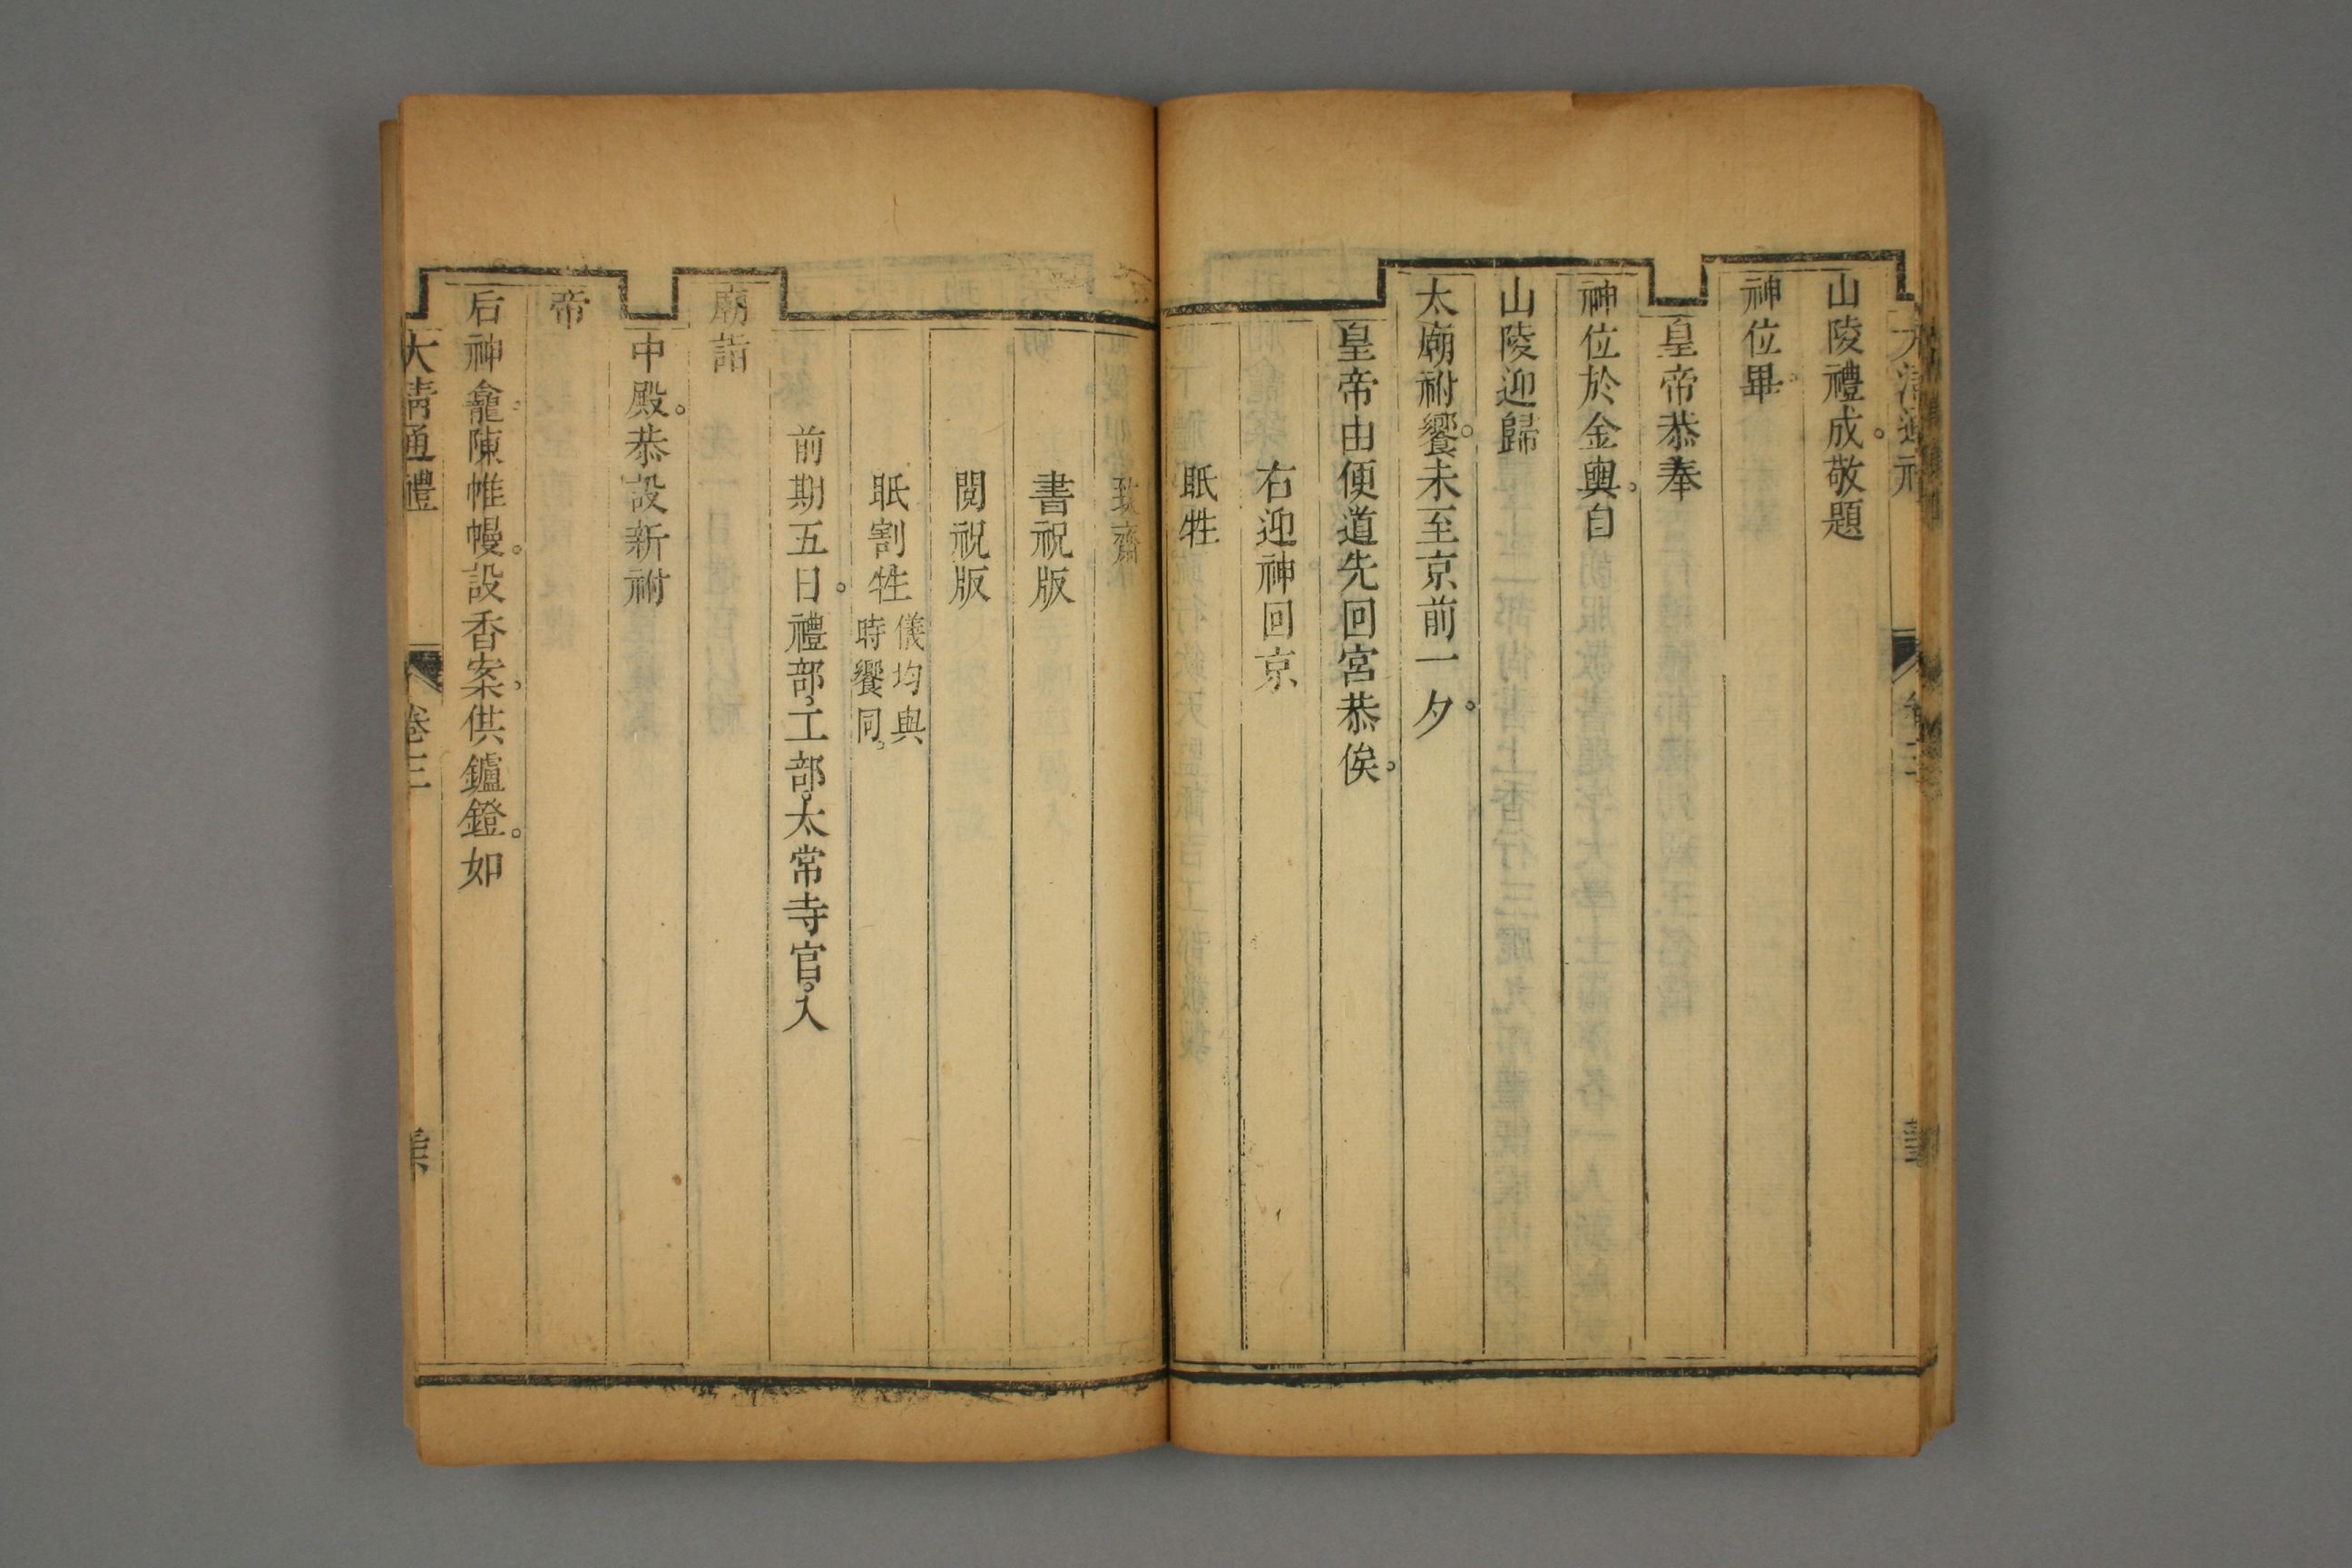 山陵禮成。敬題
神位畢。
皇帝恭奉
神位於金輿。自
山陵迎歸
太廟祔饗。未至京前一夕。
皇帝由便道先回宮恭俟。
右迎神回京
眂牲
致齋
書祝版
閱祝版
眂割牲儀均與時饗同。
前期五日。禮部。工部。太常寺官。入
廟詣
中殿。恭設新祔
帝
后神龕。陳帷幔。設香案。供鑪鐙。如
大清通禮
卷三